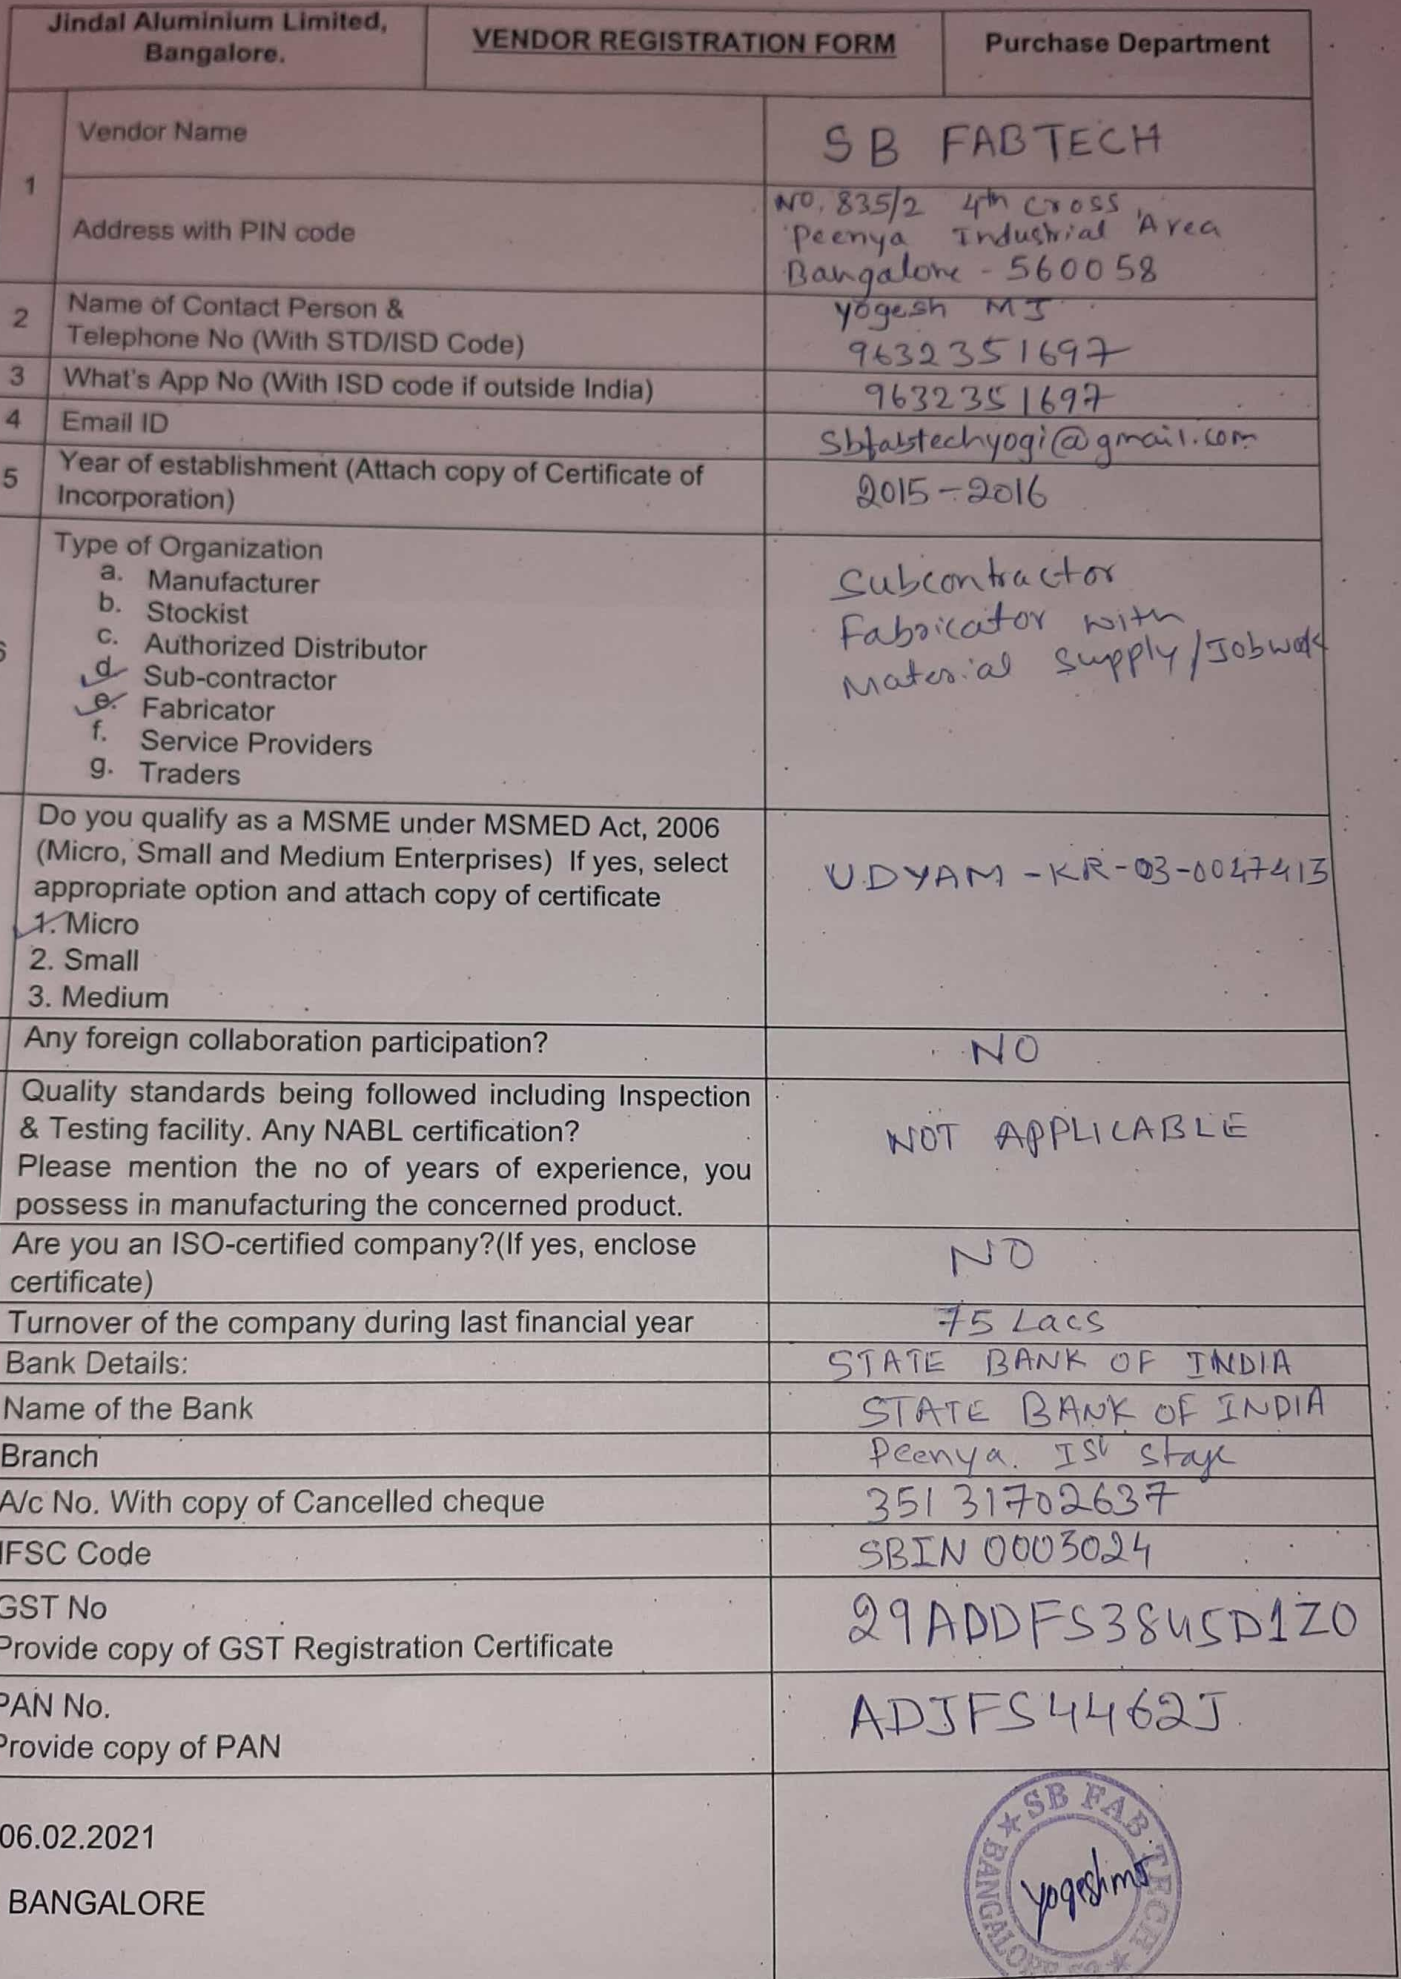 Jindal Aluminium Limited,
Bangalore.
VENDOR REGISTRATION FORM
Purchase Department
1
Vendor Name
SB FABTECH
Address with PIN code
NO. 835/2 4th cross,
Peenya Industrial Area
Bangalore - 560058
2
Name of Contact Person &
Telephone No (With STD/ISD Code)
Yogesh MJ
9632351697
3
What's App No (With ISD code if outside India)
9632351697
4
Email ID
Sbfabtechyogi@gmail.com
5
Year of establishment (Attach copy of Certificate of
Incorporation)
2015-2016
Type of Organization
a. Manufacturer
b. Stockist
c. Authorized Distributor
d Sub-contractor
e. Fabricator
f. Service Providers
g. Traders
Subcontractor
Fabricator with
Material Supply/Jobwork
Do you qualify as a MSME under MSMED Act, 2006
(Micro, Small and Medium Enterprises) If yes, select
appropriate option and attach copy of certificate
1. Micro
2. Small
3. Medium
UDYAM-KR-03-0027413
Any foreign collaboration participation?
NO
Quality standards being followed including Inspection
& Testing facility. Any NABL certification?
Please mention the no of years of experience, you
possess in manufacturing the concerned product.
NOT APPLICABLE
Are you an ISO-certified company?(If yes, enclose
certificate)
NO
Turnover of the company during last financial year
75 Lacs
Bank Details:
STATE BANK OF INDIA
Name of the Bank
STATE BANK OF INDIA
Branch
Peenya. Ist stage
A/c No. With copy of Cancelled cheque
35131702637
IFSC Code
SBIN0003024
GST No
Provide copy of GST Registration Certificate
29ADDFS3845D1ZO
PAN No.
Provide copy of PAN
ADJFS4462J
06.02.2021
BANGALORE
SB FAB TECH
BANGALORE
yogeshmJ